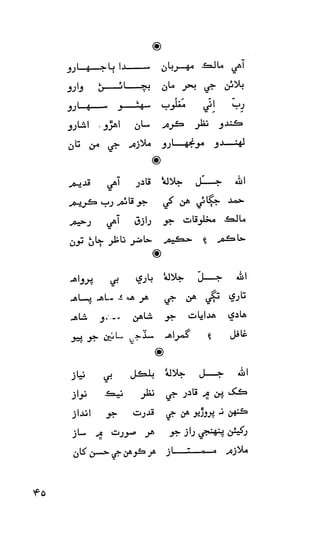 آهي مالڪ مهربان سدا ٻاجهارو
بلائن جي بحر مان بچائڻ وارو
رب اني مغلوب سهڻو سهارو
ڪندو نظر ڪرم سان اهڙو اشارو
لهندو مونجهارو ملازم جي من تان
الله جل جلالهٗ قادر آهي قديم
حمد جڳائي هن کي جو قائم رب ڪريم
مالڪ مخلوقات جو رازق آهي رحيم
حاڪم ۽ حڪيم حاضر ناظر ڄاڻ تون
الله جل جلالهٗ باري بي پرواهه
تاري تڳي هن جي هر هڪ ساهه پساهه
هادي هدايات جو شاهن شاهه
غافل ۽ گمراهه سڏجي سائين جو پيو
الله جل جلالهٗ بلڪل بي نياز
ڪک پن ۾ قادر جي نظر نيڪ نواز
ڪنهن نہ پروڙيو هن جي قدرت جو انداز
رکيئن پنهنجي راز جو هر صورت ۾ ساز
ملازم ممتاز هر ڪو هن جي حسن کان
۴۵